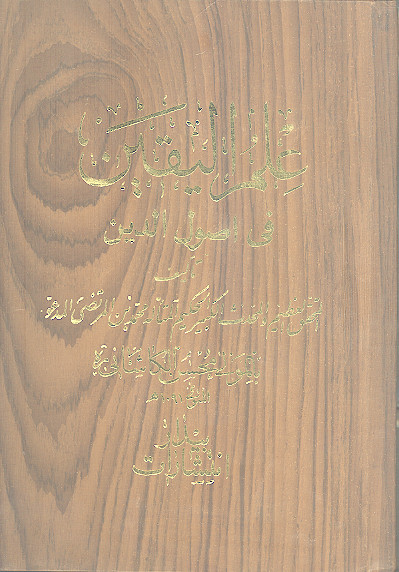 علم اليقين
في اصول الدين
تأليف
المحقق العظيم والمحدث الكبير الحكيم المتأله محمد بن المرتضى المدعو
بالمولى محسن الكاشاني ره
المتوفى ١٠٩١ هـ
بيدار
انتشارات